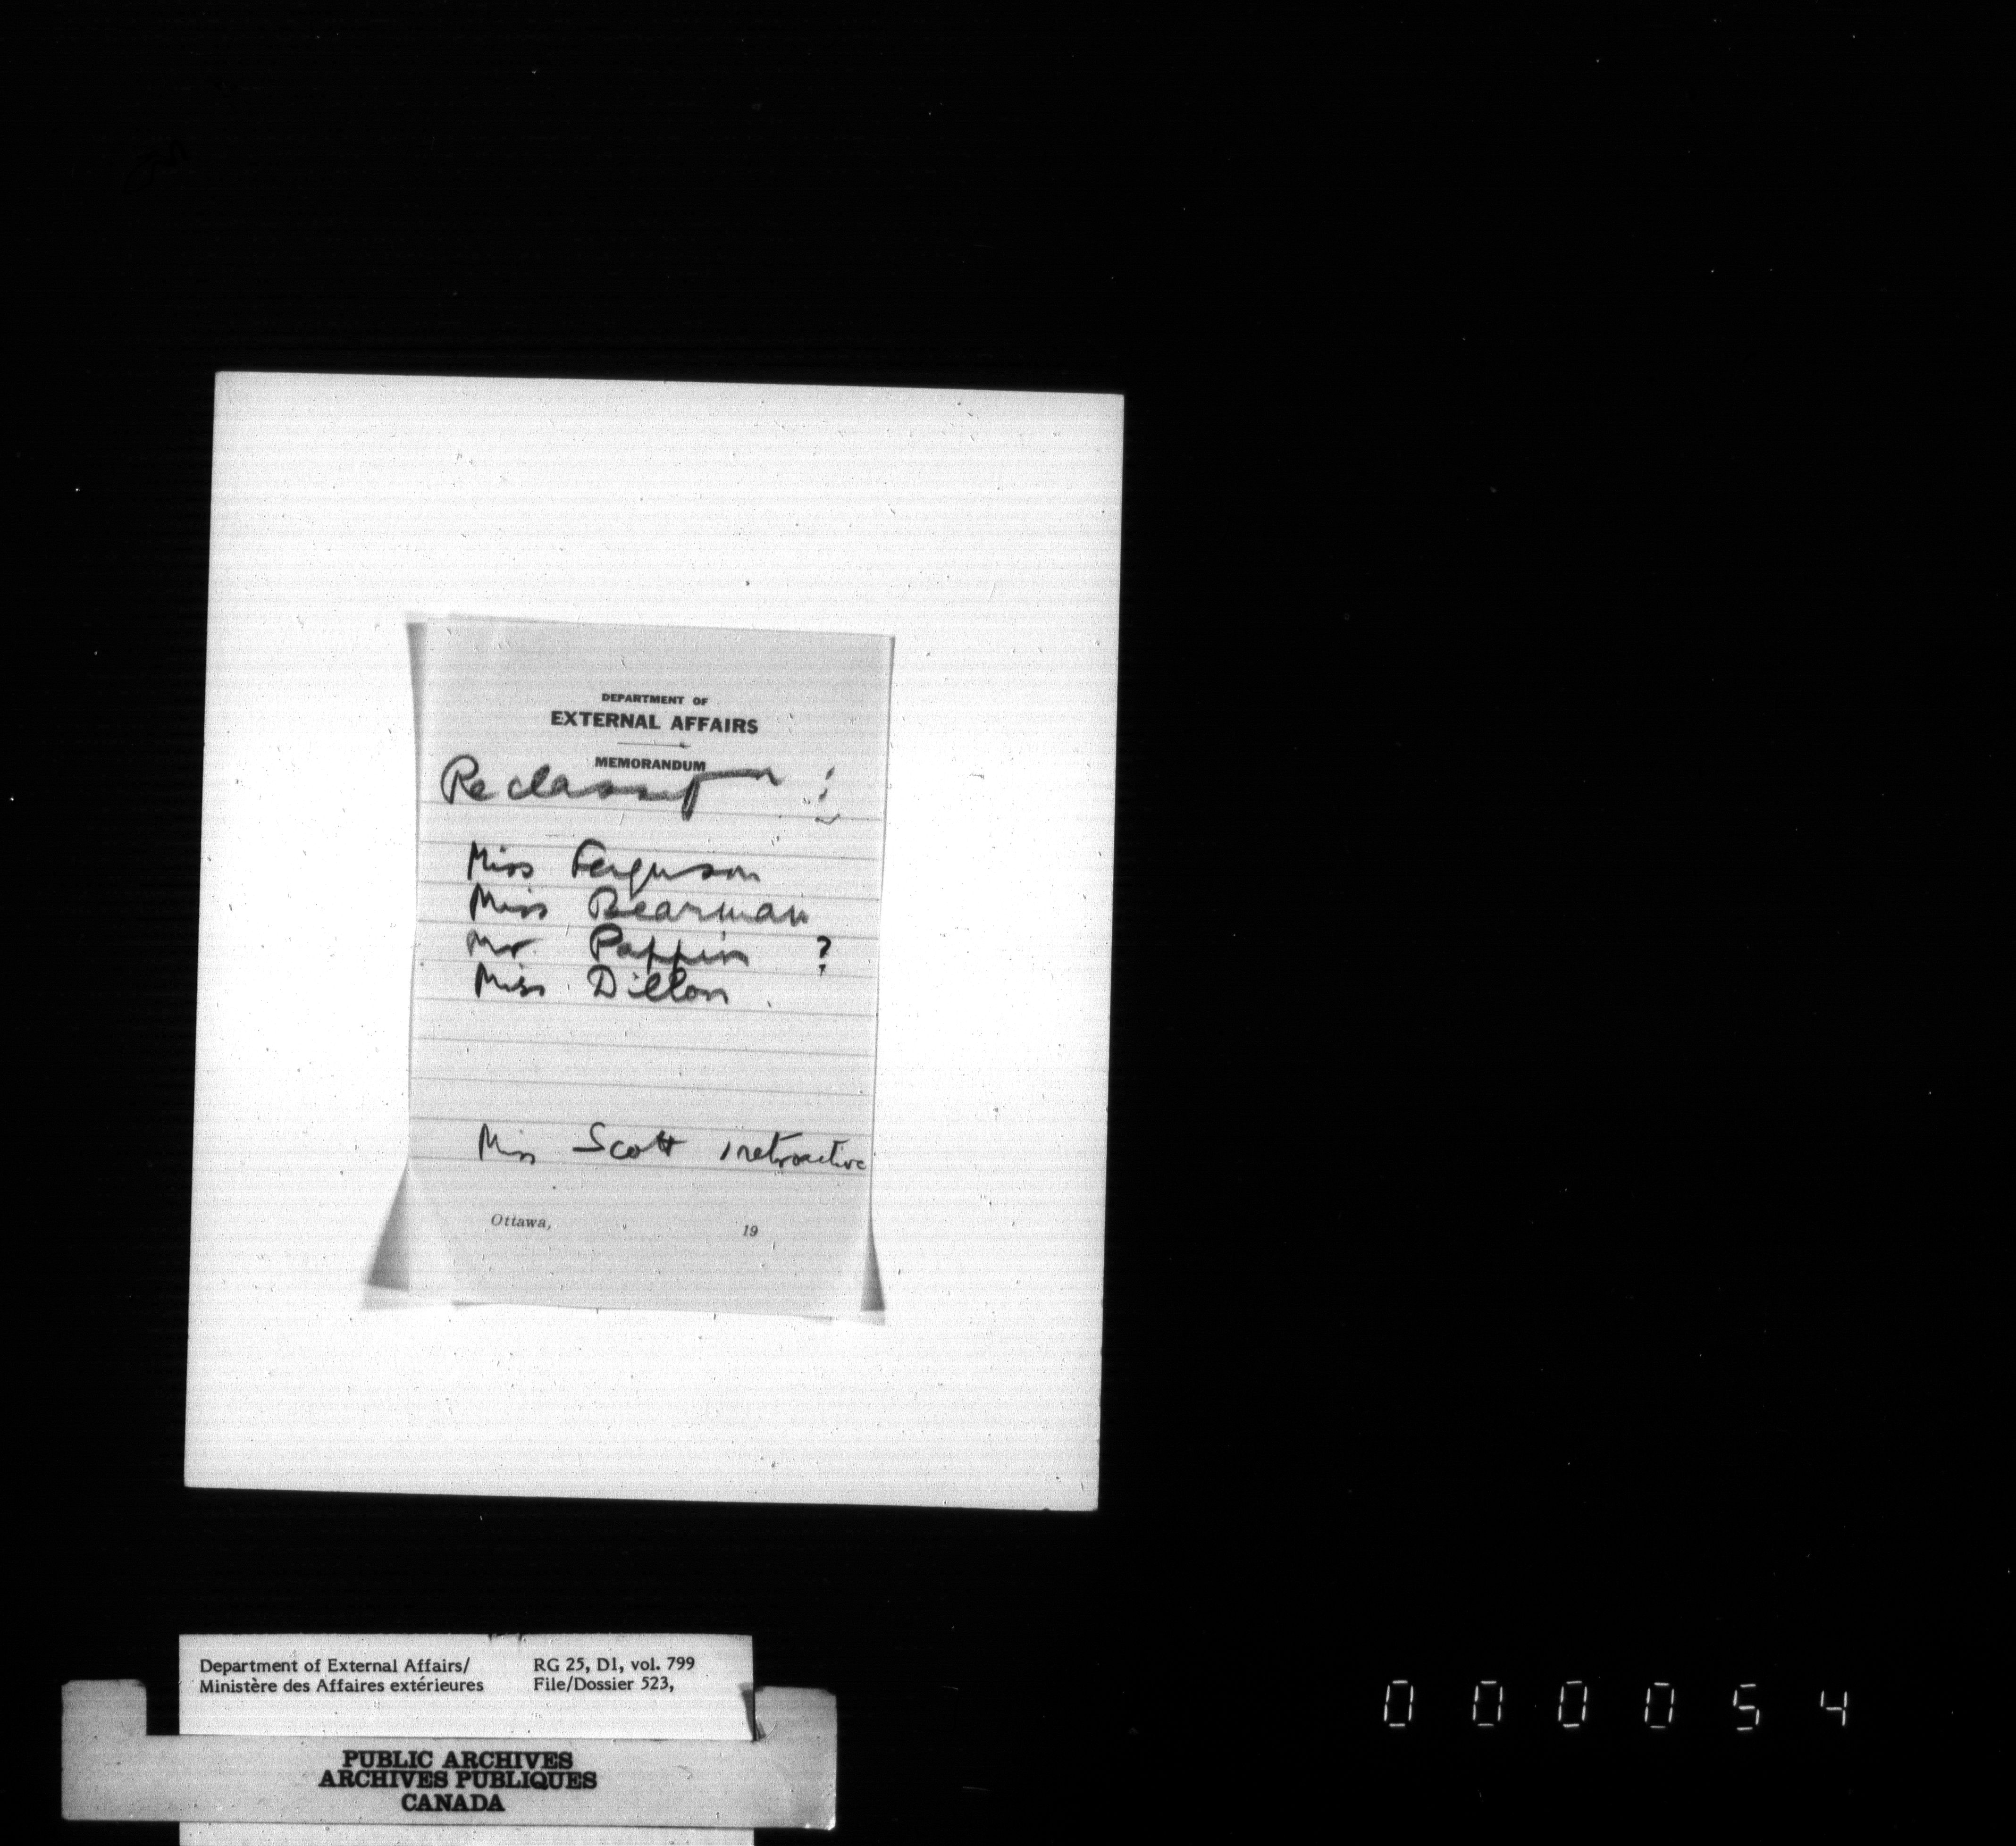 DEPARTMENT OF
EXTERNAL AFFAIRS
MEMORANDUM
Miss Ferguson
Miss Bearman
Mr. Pappin ?
Miss Dillon
Miss Scott retroactive
Ottawa, 19
Department of External Affairs/ RG 25, D1, vol. 799
Ministère des Affaires extérieures File/Dossier 523,
PUBLIC ARCHIVES
ARCHIVES PUBLIQUES
CANADA
000054